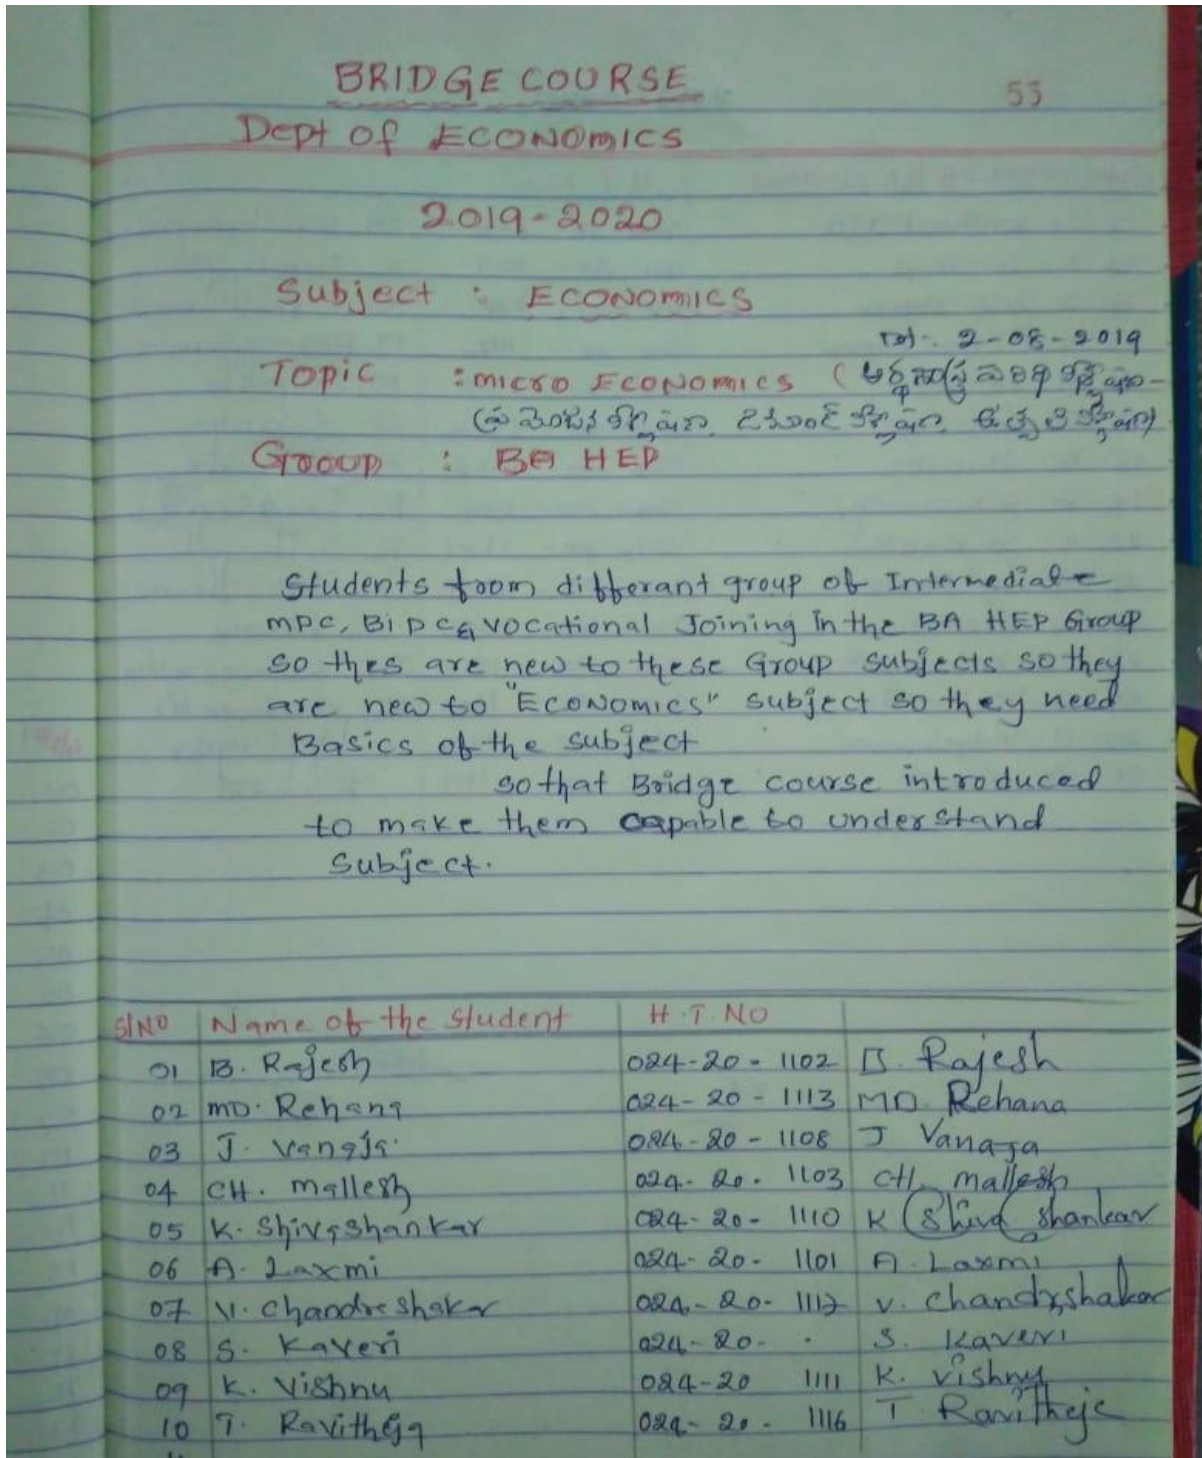 BRIDGE COURSE
53
Dept of ECONOMICS
2019-2020
Subject : ECONOMICS
2-08-2019
Topic : micro ECONOMICS (అర్థశాస్త్ర పరిధి విశ్లేషణ-
డిమాండ్ విశ్లేషణ ఉత్పత్తి విశ్లేషణ)
Group : BA HEP
Students from differant group of Intermediate
MPC, BiPC & Vocational Joining in the BA HEP Group
so thes are new to these Group subjects so they
are new to "ECONOMICS" subject so they need
Basics of the subject
so that Bridge course introduced
to make them capable to understand
subject.
Sl NO Name of the student H.T.NO
01 B. Rajesh 024-20-1102 B. Rajesh
02 MD. Rehana 024-20-1113 MD. Rehana
03 J. Vanaja 024-20-1108 J Vanaja
04 CH. mallesh 024-20-1103 CH. mallesh
05 K. Shivashankar 024-20-1110 K Shiva Shankar
06 A. Laxmi 024-20-1101 A. Laxmi
07 V. Chandrashakar 024-20- V. Chandrashakar
08 S. Kaveri 024-20- S. Kaveri
09 K. Vishnu 024-20 1111 K. Vishnu
10 T. Ravitheja 024-20-1116 T Ravitheje